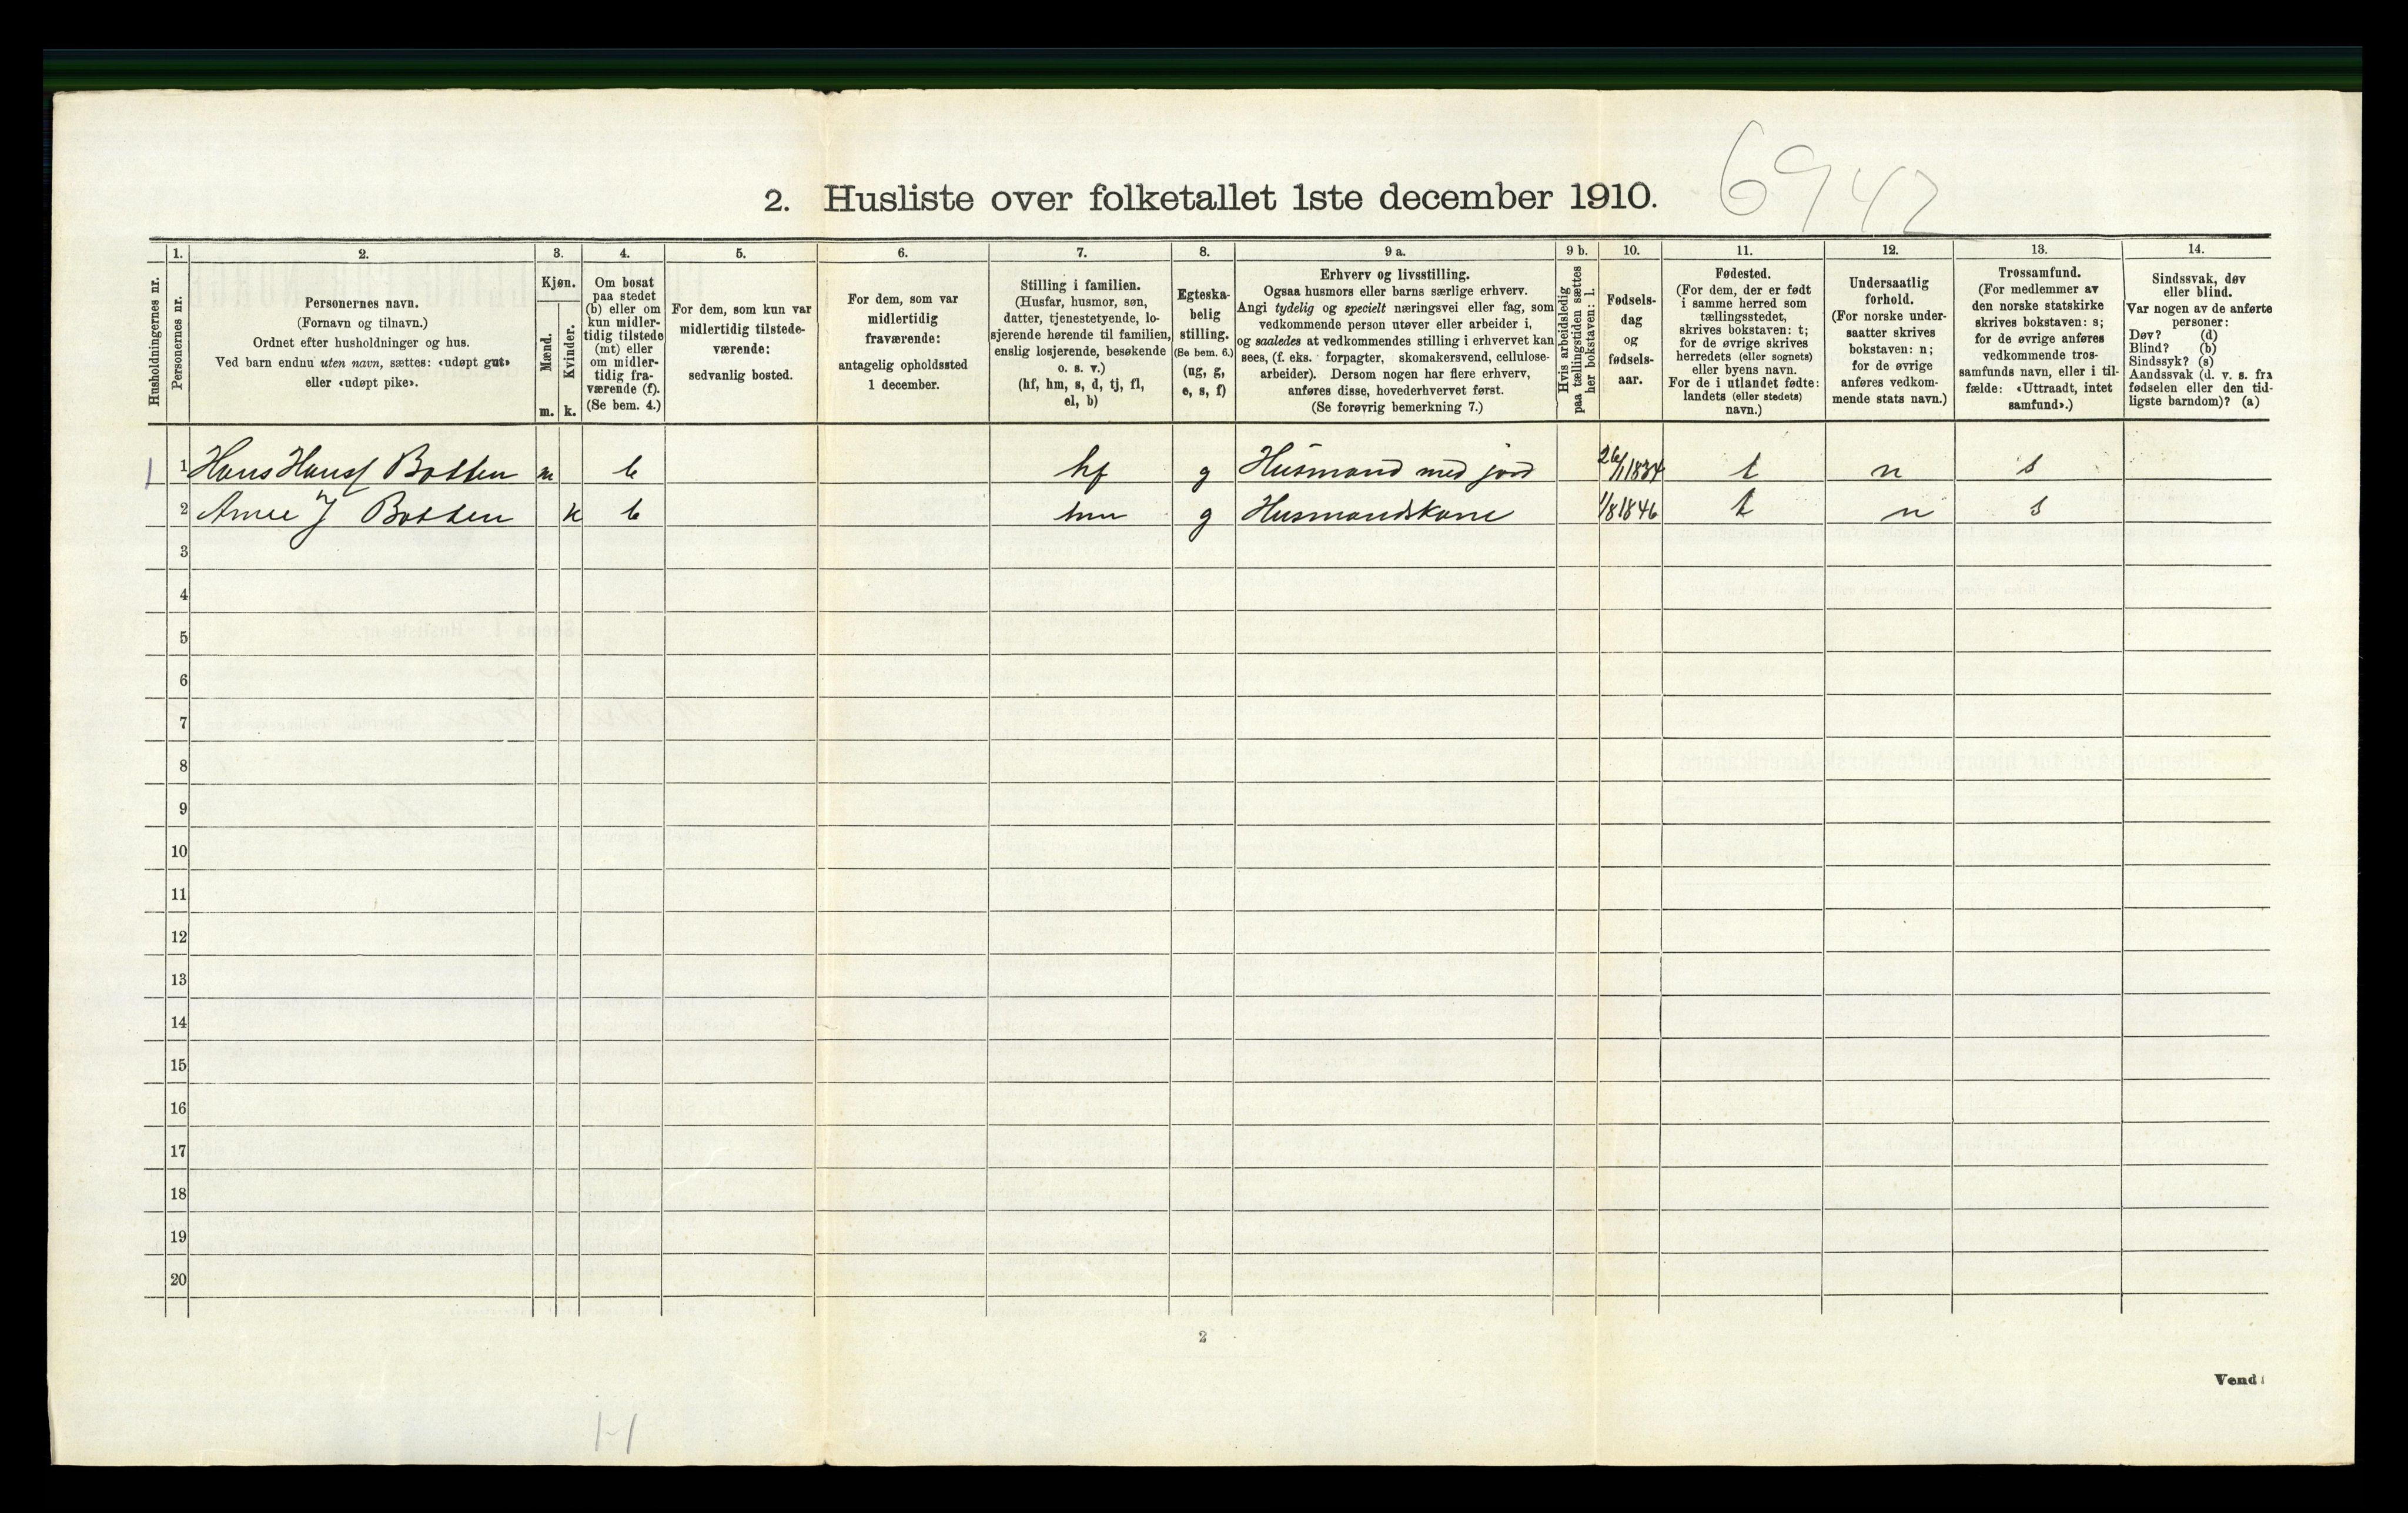 6942
2. Husliste over folketallet 1ste december 1910.
1. 2. 3. 4. 5. 6. 7. 8. 9 a. 9 b. 10. 11. 12. 13. 14.
Husholdningernes nr.
Personernes nr.
Personernes navn.
(Fornavn og tilnavn.)
Ordnet efter husholdninger og hus.
Ved barn endnu uten navn, sættes: «udøpt gut»
eller «udøpt pike».
Kjøn.
Mænd.
Kvinder.
m. k.
Om bosat
paa stedet
(b) eller om
kun midler-
tidig tilstede
(mt) eller
om midler-
tidig fra-
værende (f).
(Se bem. 4.)
For dem, som kun var
midlertidig tilstede-
værende:
sedvanlig bosted.
For dem, som var
midlertidig
fraværende:
antagelig opholdssted
1 december.
Stilling i familien.
(Husfar, husmor, søn,
datter, tjenestetyende, lo-
sjerende hørende til familien,
enslig losjerende, besøkende
o. s. v.)
(hf, hm, s, d, tj, fl,
el, b)
Egteska-
belig
stilling.
(Se bem. 6.)
(ug, g,
e, s, f)
Erhverv og livsstilling.
Ogsaa husmors eller barns særlige erhverv.
Angi tydelig og specielt næringsvei eller fag, som
vedkommende person utøver eller arbeider i,
og saaledes at vedkommendes stilling i erhvervet kan
sees, (f. eks. forpagter, skomakersvend, cellulose-
arbeider). Dersom nogen har flere erhverv,
anføres disse, hovederhvervet først.
(Se forøvrig bemerkning 7.)
Hvis arbeidsledig
paa tællingstiden sættes
her bokstaven: l.
Fødsels-
dag
og
fødsels-
aar.
Fødested.
(For dem, der er født
i samme herred som
tællingsstedet,
skrives bokstaven: t;
for de øvrige skrives
herredets (eller sognets)
eller byens navn.
For de i utlandet fødte:
landets (eller stedets)
navn.)
Undersaatlig
forhold.
(For norske under-
saatter skrives
bokstaven: n;
for de øvrige
anføres vedkom-
mende stats navn.)
Trossamfund.
(For medlemmer av
den norske statskirke
skrives bokstaven: s;
for de øvrige anføres
vedkommende tros-
samfunds navn, eller i til-
fælde: «Uttraadt, intet
samfund».)
Sindssvak, døv
eller blind.
Var nogen av de anførte
personer:
Døv? (d)
Blind? (b)
Sindssyk? (s)
Aandssvak (d. v. s. fra
fødselen eller den tid-
ligste barndom)? (a)
1 1 Hans Hansf Botten m b hf g Husmand med jord 26/1 1834 t n s
2 Anne J Botten k b hm g Husmandskone 1/8 1846 t n s
3
4
5
6
7
8
9
10
11
12
13
14
15
16
17
18
19
20
2
Vend!
1-1